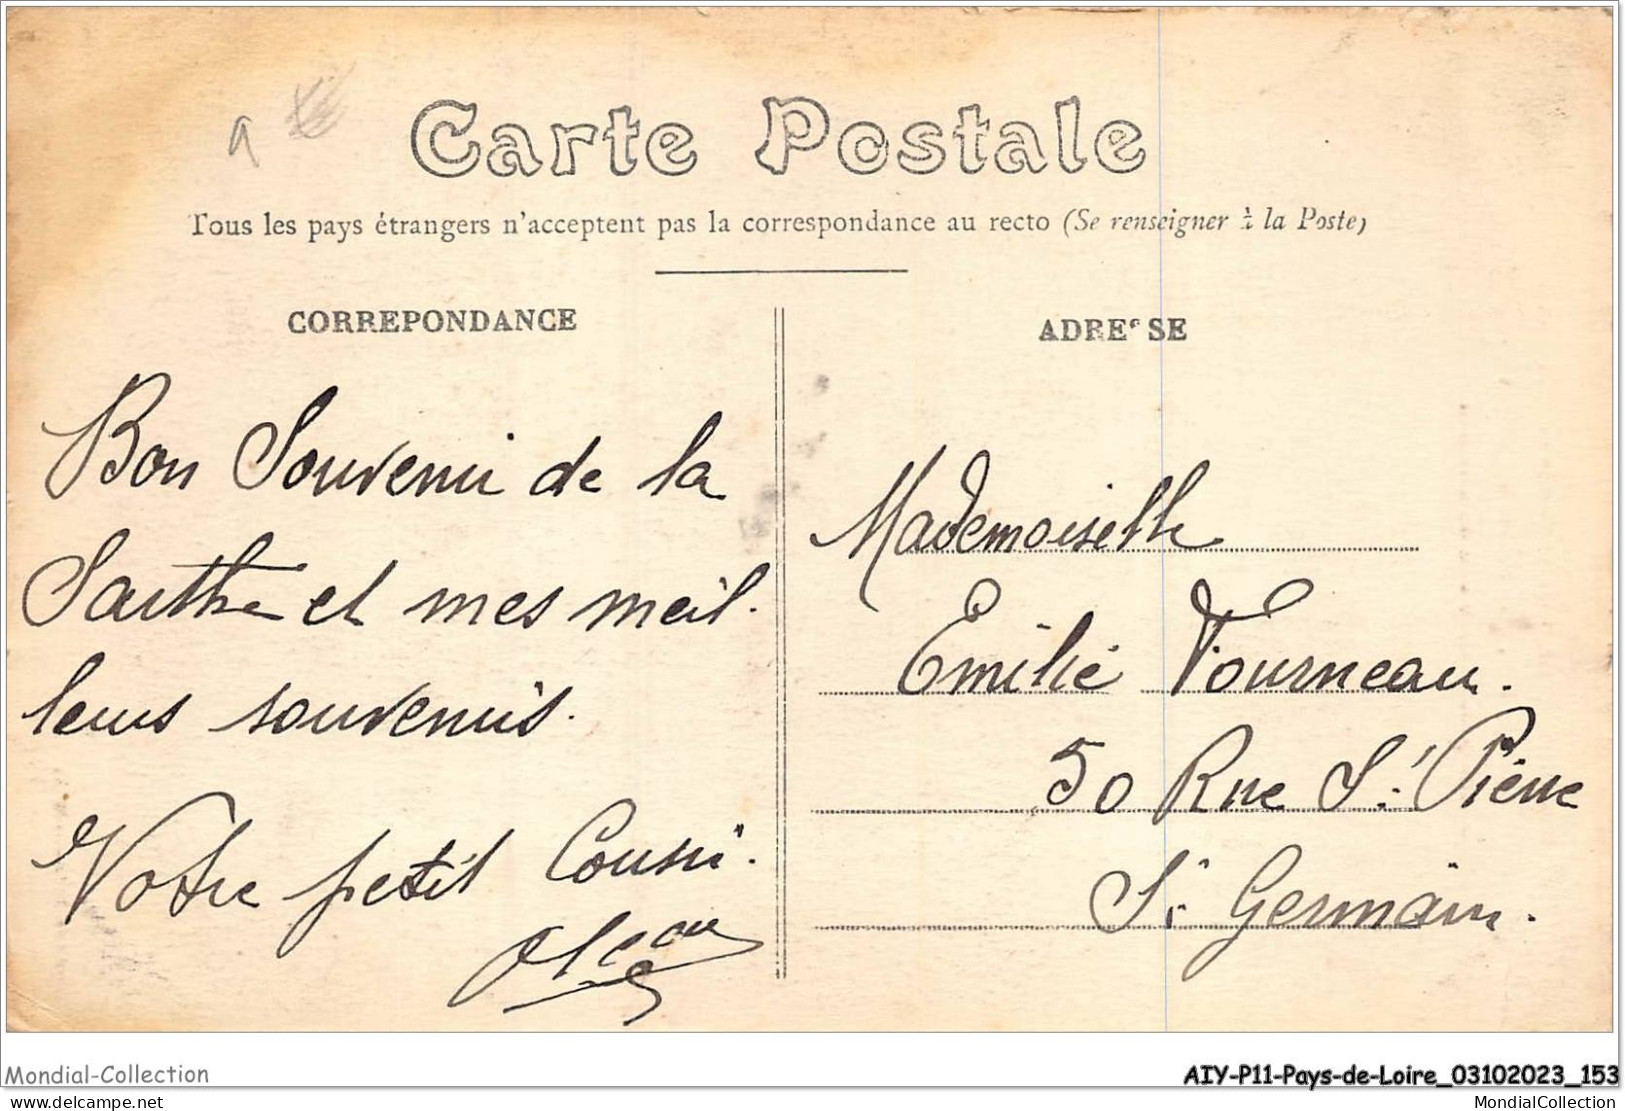 Carte Postale
Tous les pays étrangers n'acceptent pas la correspondance au recto (Se renseigner à la Poste)
CORREPONDANCE
Bon Souvenir de la
Sarthe et mes meil-
leurs souvenirs.
Votre petit Cousin.
ADRESSE
Mademoiselle
Emilie Tourneau.
50 Rue St Pierre
St Germain.
Mondial-Collection
AIY-P11-Pays-de-Loire_03102023_153
delcampe.net
MondialCollection